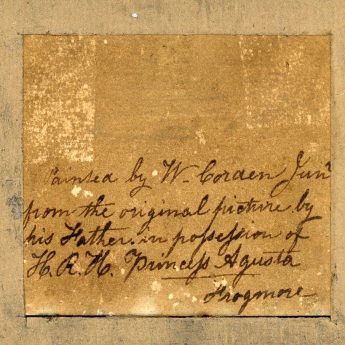 Painted by W. Corden Junr
from the original picture by
his Father in possession of
H. R. H. Princess Agusta
Frogmore